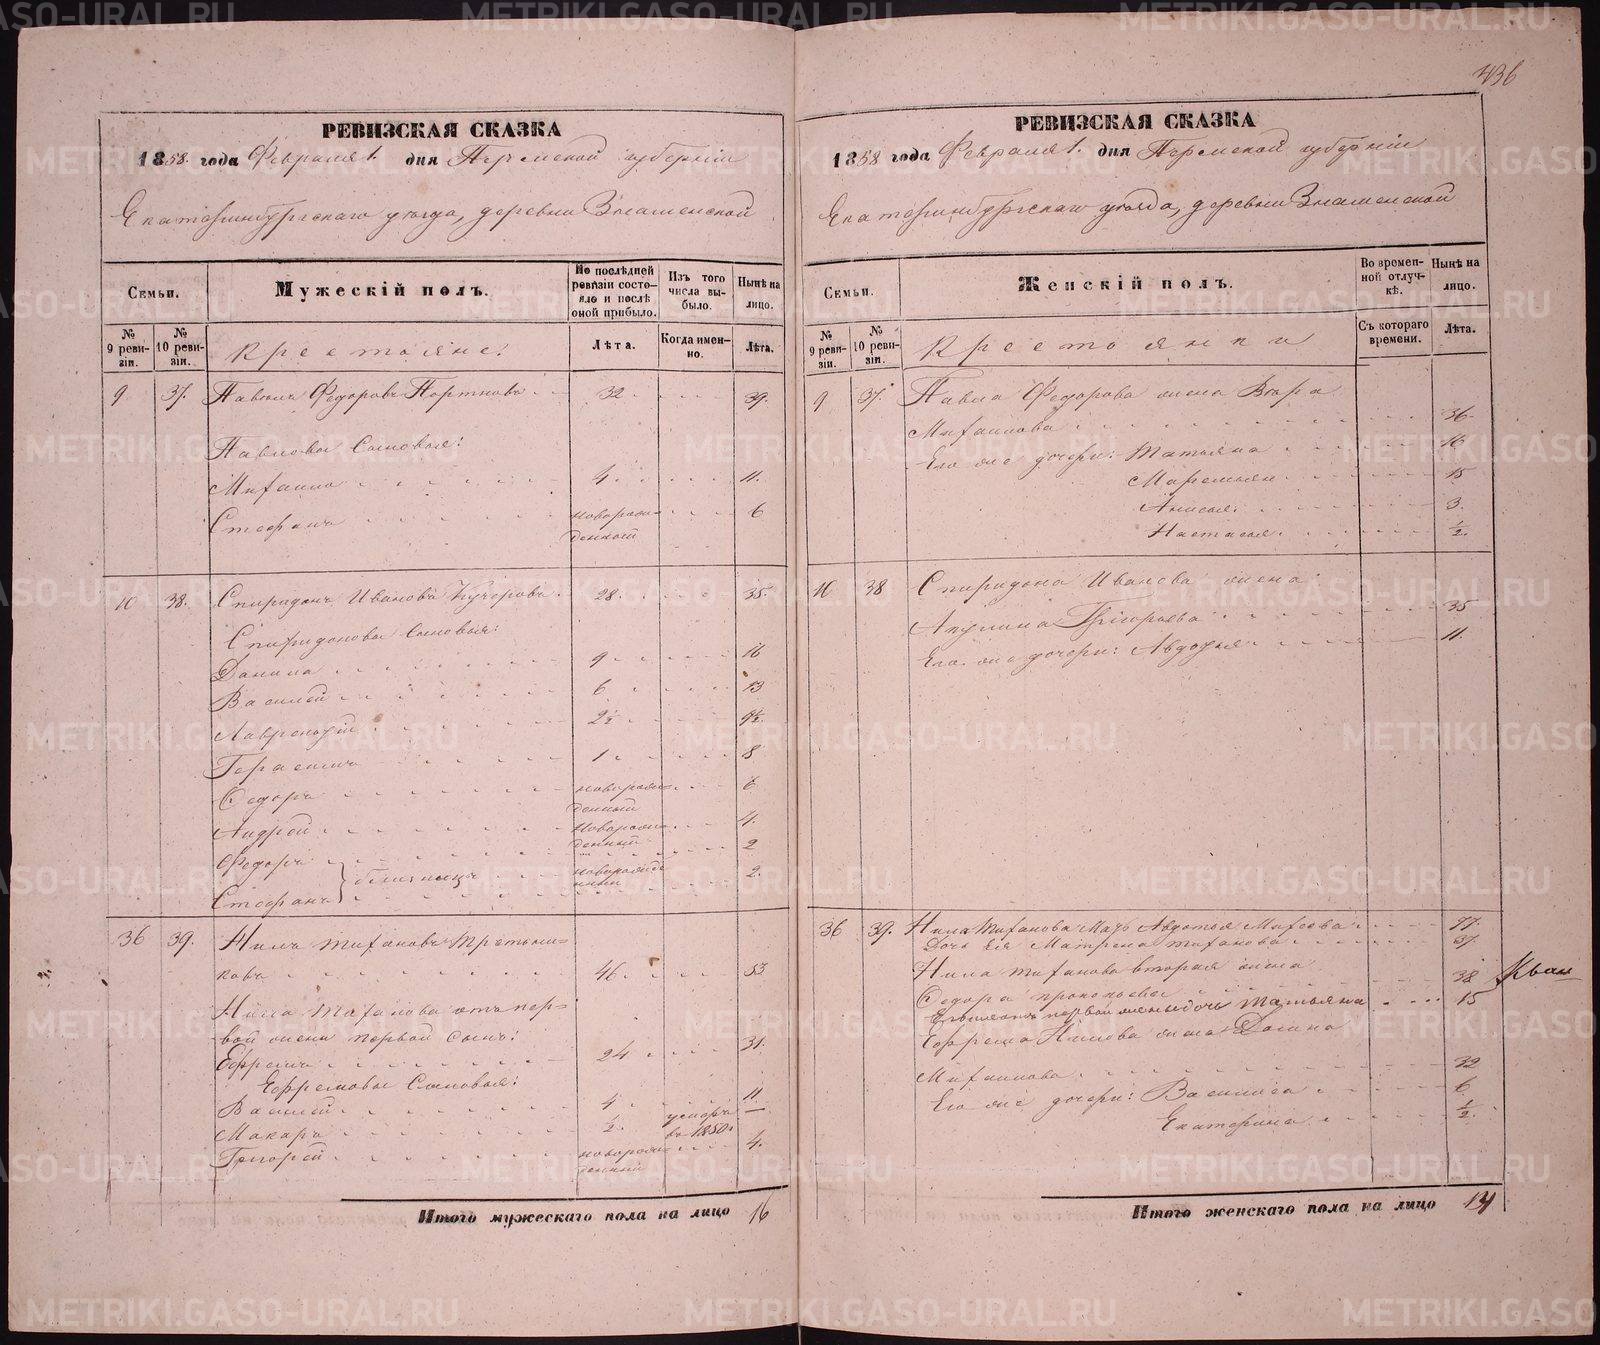 436
РЕВИЗСКАЯ СКАЗКА
1858 года Февраля 1. дня Пермской губерніи
Екатеринбургскаго уѣзда, деревни Знаменской
Семьи.
Мужескій полъ.
По послѣдней ревизіи состояло и послѣ оной прибыло.
Изъ того числа выбыло.
Нынѣ на лицо.
№ 9 ревизіи.
№ 10 ревизіи.
Крестьяне:
Лѣта.
Когда именно.
Лѣта.
9 37. Павелъ Федоровъ Портновъ 32 39.
Павловы Сыновья:
Михаило 4 11.
Стефанъ новорожденный 6
10 38. Спиридонъ Ивановъ Кучеровъ 28. 35.
Спиридоновы Сыновья:
Данила 9 16
Василей 6 13
Лаврентій 2½ 9½
Герасимъ 1 8
Федоръ новорожденный 6
Андрей новорожденный 4.
Федоръ 2
близнецы новорожденный
Стефанъ 2.
36 39. Нилъ Тихановъ Третьяковъ 46 53
Нила Тиханова отъ первой жены первой сынъ:
Ефремъ 24 31.
Ефремовы Сыновья:
Василей 4 11
Макаръ ½ умеръ въ 1850. —
Григорей новорожденный 4.
Итого мужескаго пола на лицо 16
РЕВИЗСКАЯ СКАЗКА
1858 года Февраля 1. дня Пермской губерніи
Екатеринбургскаго уѣзда, деревни Знаменской
Семьи.
Женскій полъ.
Во временной отлучкѣ.
Нынѣ на лицо.
№ 9 ревизіи.
№ 10 ревизіи.
Крестьянки
Съ котораго времени.
Лѣта.
9 37. Павла Федорова жена Вѣра
Михаилова 36
Его же дочери: Татьяна 16
Маремьян 15
Анисья 3.
Настасья ½
10 38 Спиридона Иванова жена
Акулина Григорьева 35
Его же дочери: Авдотья 11.
36 39. Нила Тиханова Мать Авдотья 77.
Дочь Ея Матрена Тиханова 37
Нила Тиханова вторая жена
Федора Прокопьева 38
первой жены дочь Татьяна 15
Ефрема Нилова жена
Михаилова 32
Его же дочери: Василиса 6
Екатерина ½
Итого женскаго пола на лицо
METRIKI.GASO-URAL.RU